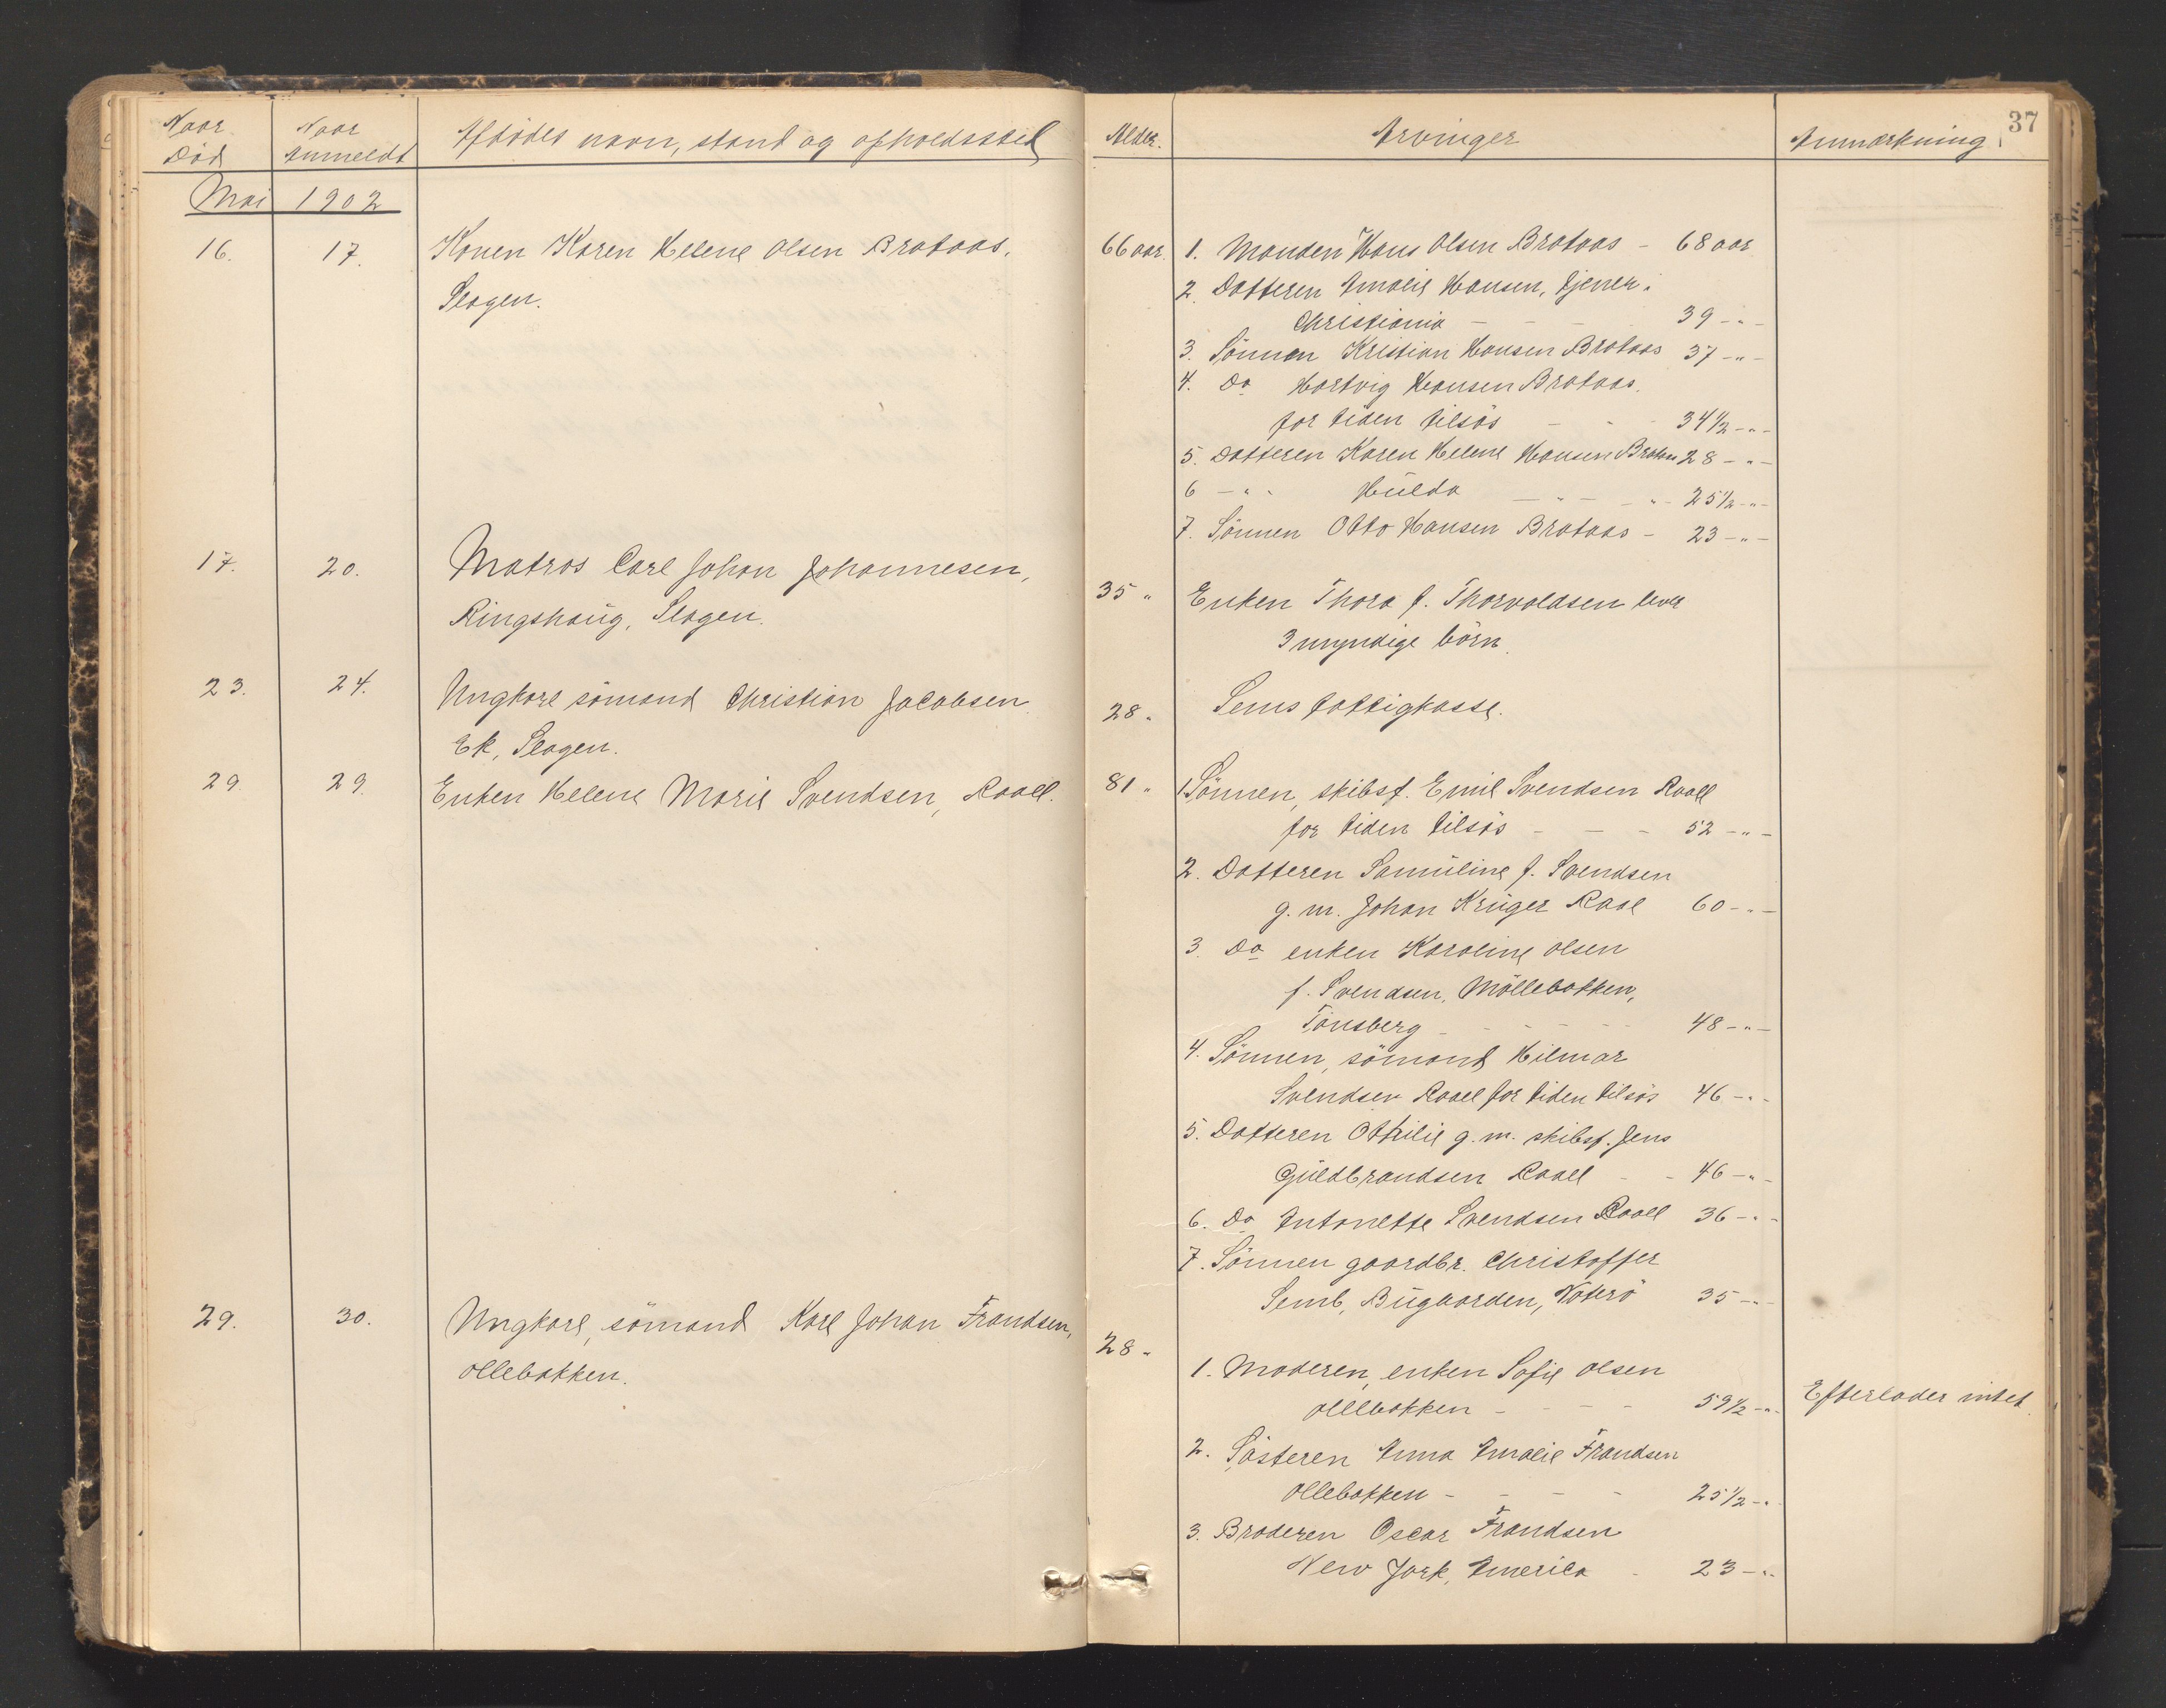 37
Naar Død
Naar anmeldt
Afdødes navn, stand og opholdssted
Alder.
Arvinger
Anmærkning
Mai 1902
16. 17. Konen Karen Helene Olsen Brataas,
Slagen.
66 aar.
1. Manden Hans Olsen Brataas - 68 aar
2. Datteren Amalie Hansen, tjener i
Christiania - - - 39 - " -
3. Sønnen Kristian Hansen Brataas 37 - " -
4. Do Hartvig Hansen Brataas.
for tiden tilsøs - - 34 1/2 - " -
5. Datteren Karen Helene Hansen Brataas 28 - " -
6 - " - Hulda - " - " - 25 1/2 - " -
7. Sønnen Otto Hansen Brataas - 23 - " -
17. 20. Matros Carl Johan Johannesen,
Ringshaug, Slagen.
35 "
Enken Thora f. Thorvaldsen lever
3 umyndige børn.
23. 24. Ungkarl sømand Christian Jacobsen
Ek, Slagen.
28 "
Sems fattigkasse.
29. 29. Enken Helene Marie Svendsen, Raael.
81 "
1. Sønnen, skibsf. Emil Svendsen Raael
for tiden tilsøs - - - 52 - " -
2. Datteren Samuline f. Svendsen
g. m. Johan Krüger Raael 60 - " -
3. Do enken Karoline Olsen
f. Svendsen, Møllebakken,
Tønsberg - - - - 48 - " -
4. Sønnen, sømand Hilmar
Svendsen Raael for tiden tilsøs 46 - " -
5. Datteren Othilie g. m. skibsf. Jens
Guldbrandsen Raael - - 46 - " -
6. Do Antonette Svendsen Raael 36 - " -
7. Sønnen gaardbr. Christoffer
Semb, Bugaarden, Nøterø 35 - " -
29. 30. Ungkarl, sømand Karl Johan Frandsen,
Ollebakken.
28 "
1. Moderen, enken Sofie Olsen
Ollebakken - - - - 59 1/2 - " -
Efterlader intet.
2. Søsteren Anna Amalie Frandsen
Ollebakken - - - - 25 1/2 - " -
3. Broderen Oscar Frandsen
New York, America - 23 - " -